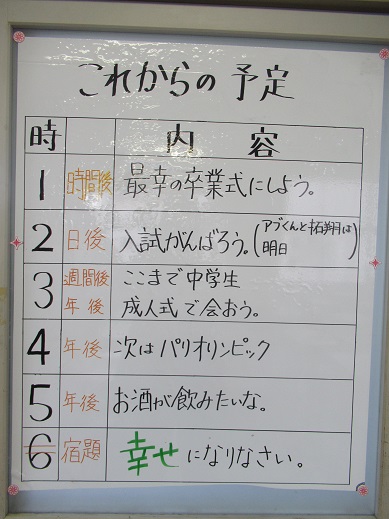 これからの予定
時 内容
1 時間後 最幸の卒業式にしよう。
2 日後 入試がんばろう。(アブくんと拓翔は明日)
3 週間後 ここまで中学生
年後 成人式で会おう。
4 年後 次はパリオリンピック
5 年後 お酒が飲みたいな。
6 宿題 幸せになりなさい。